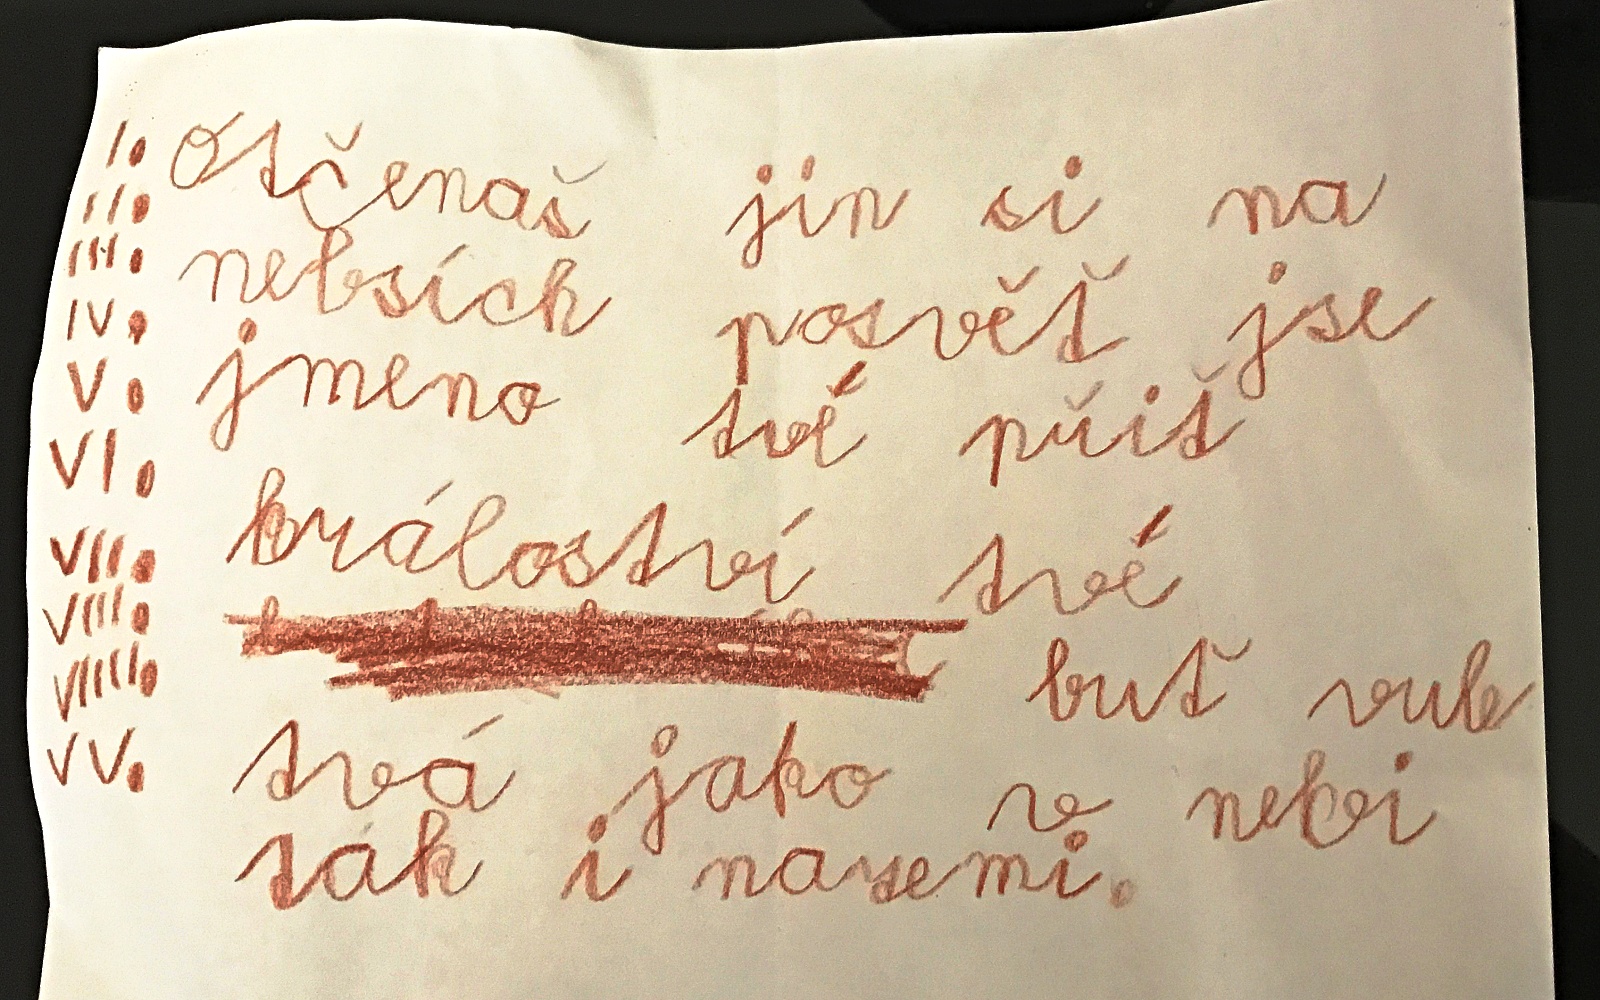 I. Otčenaš jin si na
II.
III. nebsích posvěť jse
IV. jmeno tvé přiť
V.
VI. králoství tvé
VII.
VIII. buť vule
VIIII. tvá jako v nebi
VV. ták i nazemi.